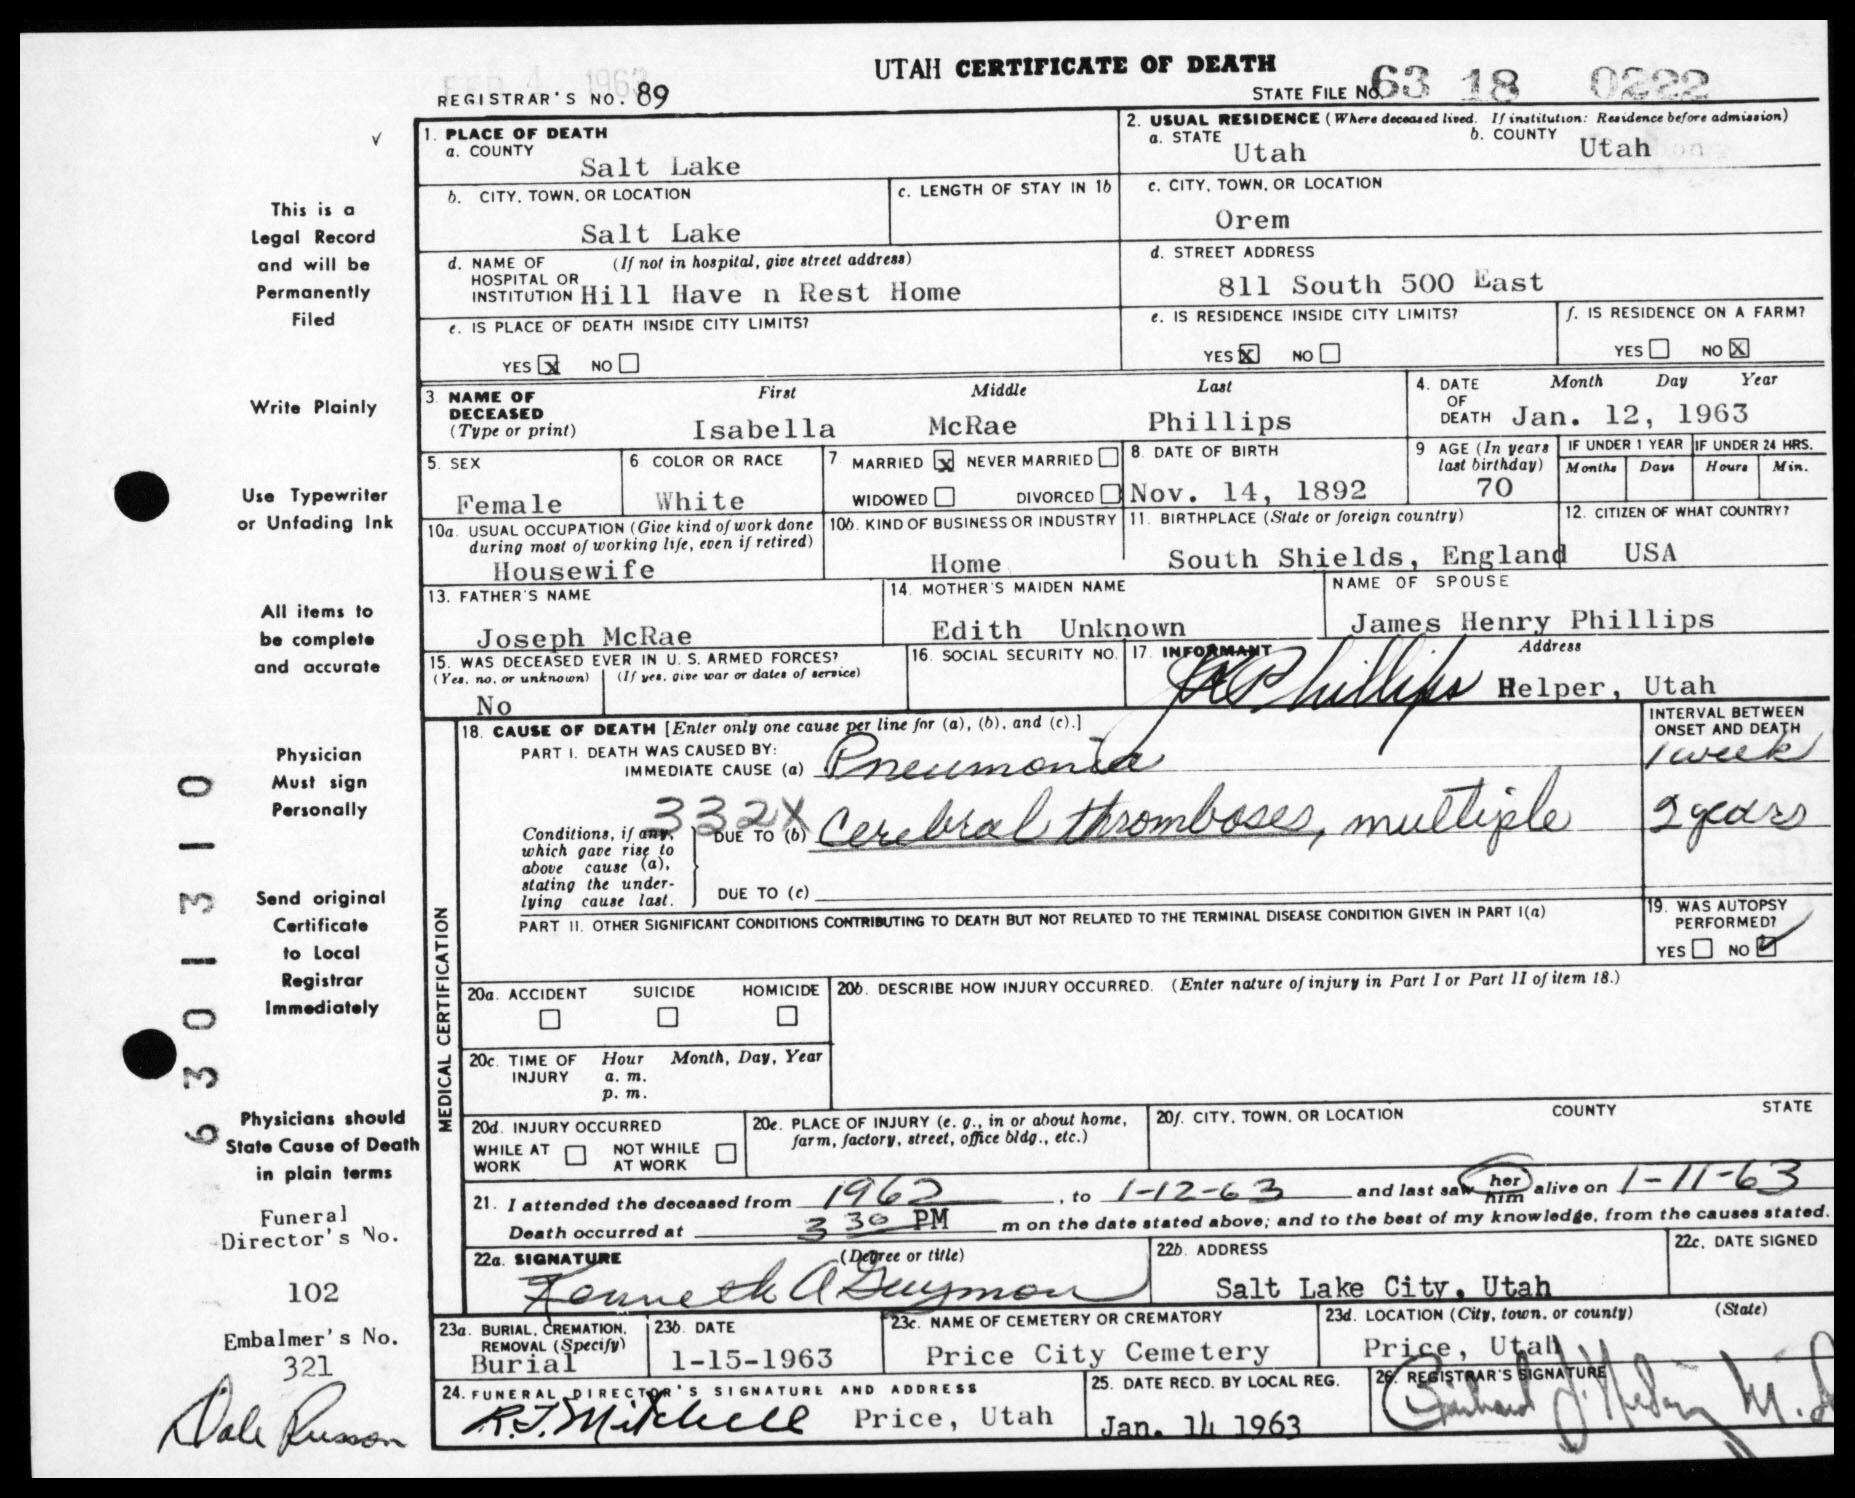 FEB 4 1963
UTAH CERTIFICATE OF DEATH
REGISTRAR'S NO. 89
STATE FILE NO. 63 18 0222
This is a
Legal Record
and will be
Permanently
Filed
Write Plainly
Use Typewriter
or Unfading Ink
All items to
be complete
and accurate
Physician
Must sign
Personally
Send original
Certificate
to Local
Registrar
Immediately
Physicians should
State Cause of Death
in plain terms
Funeral
Director's No.
102
Embalmer's No.
321
Dale Russon
6 3 0 1 3 1 0
1. PLACE OF DEATH
a. COUNTY
Salt Lake
2. USUAL RESIDENCE (Where deceased lived. If institution: Residence before admission)
a. STATE Utah
b. COUNTY Utah
b. CITY, TOWN, OR LOCATION
Salt Lake
c. LENGTH OF STAY IN 1b
c. CITY, TOWN, OR LOCATION
Orem
d. NAME OF (If not in hospital, give street address)
HOSPITAL OR
INSTITUTION Hill Have n Rest Home
d. STREET ADDRESS
811 South 500 East
e. IS PLACE OF DEATH INSIDE CITY LIMITS?
YES X NO
e. IS RESIDENCE INSIDE CITY LIMITS?
YES X NO
f. IS RESIDENCE ON A FARM?
YES NO X
3. NAME OF DECEASED (Type or print)
First Middle Last
Isabella McRae Phillips
4. DATE OF DEATH Month Day Year
Jan. 12, 1963
5. SEX
Female
6 COLOR OR RACE
White
7. MARRIED X NEVER MARRIED
WIDOWED DIVORCED
8. DATE OF BIRTH
Nov. 14, 1892
9 AGE (In years last birthday)
70
IF UNDER 1 YEAR IF UNDER 24 HRS.
Months Days Hours Min.
10a. USUAL OCCUPATION (Give kind of work done
during most of working life, even if retired)
Housewife
10b. KIND OF BUSINESS OR INDUSTRY
Home
11. BIRTHPLACE (State or foreign country)
South Shields, England
12. CITIZEN OF WHAT COUNTRY?
USA
13. FATHER'S NAME
Joseph McRae
14. MOTHER'S MAIDEN NAME
Edith Unknown
NAME OF SPOUSE
James Henry Phillips
15. WAS DECEASED EVER IN U. S. ARMED FORCES?
(Yes, no, or unknown) (If yes, give war or dates of service)
No
16. SOCIAL SECURITY NO.
17. INFORMANT Address
Phillips Helper, Utah
MEDICAL CERTIFICATION
18. CAUSE OF DEATH [Enter only one cause per line for (a), (b), and (c).]
INTERVAL BETWEEN
ONSET AND DEATH
PART I. DEATH WAS CAUSED BY:
IMMEDIATE CAUSE (a) Pneumonia 1 week
332X
Conditions, if any,
which gave rise to
above cause (a),
stating the under-
lying cause last.
DUE TO (b) Cerebral thromboses, multiple 2 years
DUE TO (c)
PART II. OTHER SIGNIFICANT CONDITIONS CONTRIBUTING TO DEATH BUT NOT RELATED TO THE TERMINAL DISEASE CONDITION GIVEN IN PART I(a)
19. WAS AUTOPSY
PERFORMED?
YES NO ✓
20a. ACCIDENT SUICIDE HOMICIDE
20b. DESCRIBE HOW INJURY OCCURRED. (Enter nature of injury in Part I or Part II of item 18.)
20c. TIME OF INJURY Hour Month, Day, Year
a. m.
p. m.
20d. INJURY OCCURRED
WHILE AT WORK NOT WHILE AT WORK
20e. PLACE OF INJURY (e. g., in or about home,
farm, factory, street, office bldg., etc.)
20f. CITY, TOWN, OR LOCATION COUNTY STATE
21. I attended the deceased from 1962, to 1-12-63 and last saw her him alive on 1-11-63
Death occurred at 3 30 PM m on the date stated above; and to the best of my knowledge, from the causes stated.
22a. SIGNATURE (Degree or title)
Kenneth A Guymon
22b. ADDRESS
Salt Lake City, Utah
22c. DATE SIGNED
23a. BURIAL, CREMATION,
REMOVAL (Specify)
Burial
23b. DATE
1-15-1963
23c. NAME OF CEMETERY OR CREMATORY
Price City Cemetery
23d. LOCATION (City, town, or county) (State)
Price, Utah
24. FUNERAL DIRECTOR'S SIGNATURE AND ADDRESS
R.J. Mitchell Price, Utah
25. DATE RECD. BY LOCAL REG.
Jan. 14 1963
26. REGISTRAR'S SIGNATURE